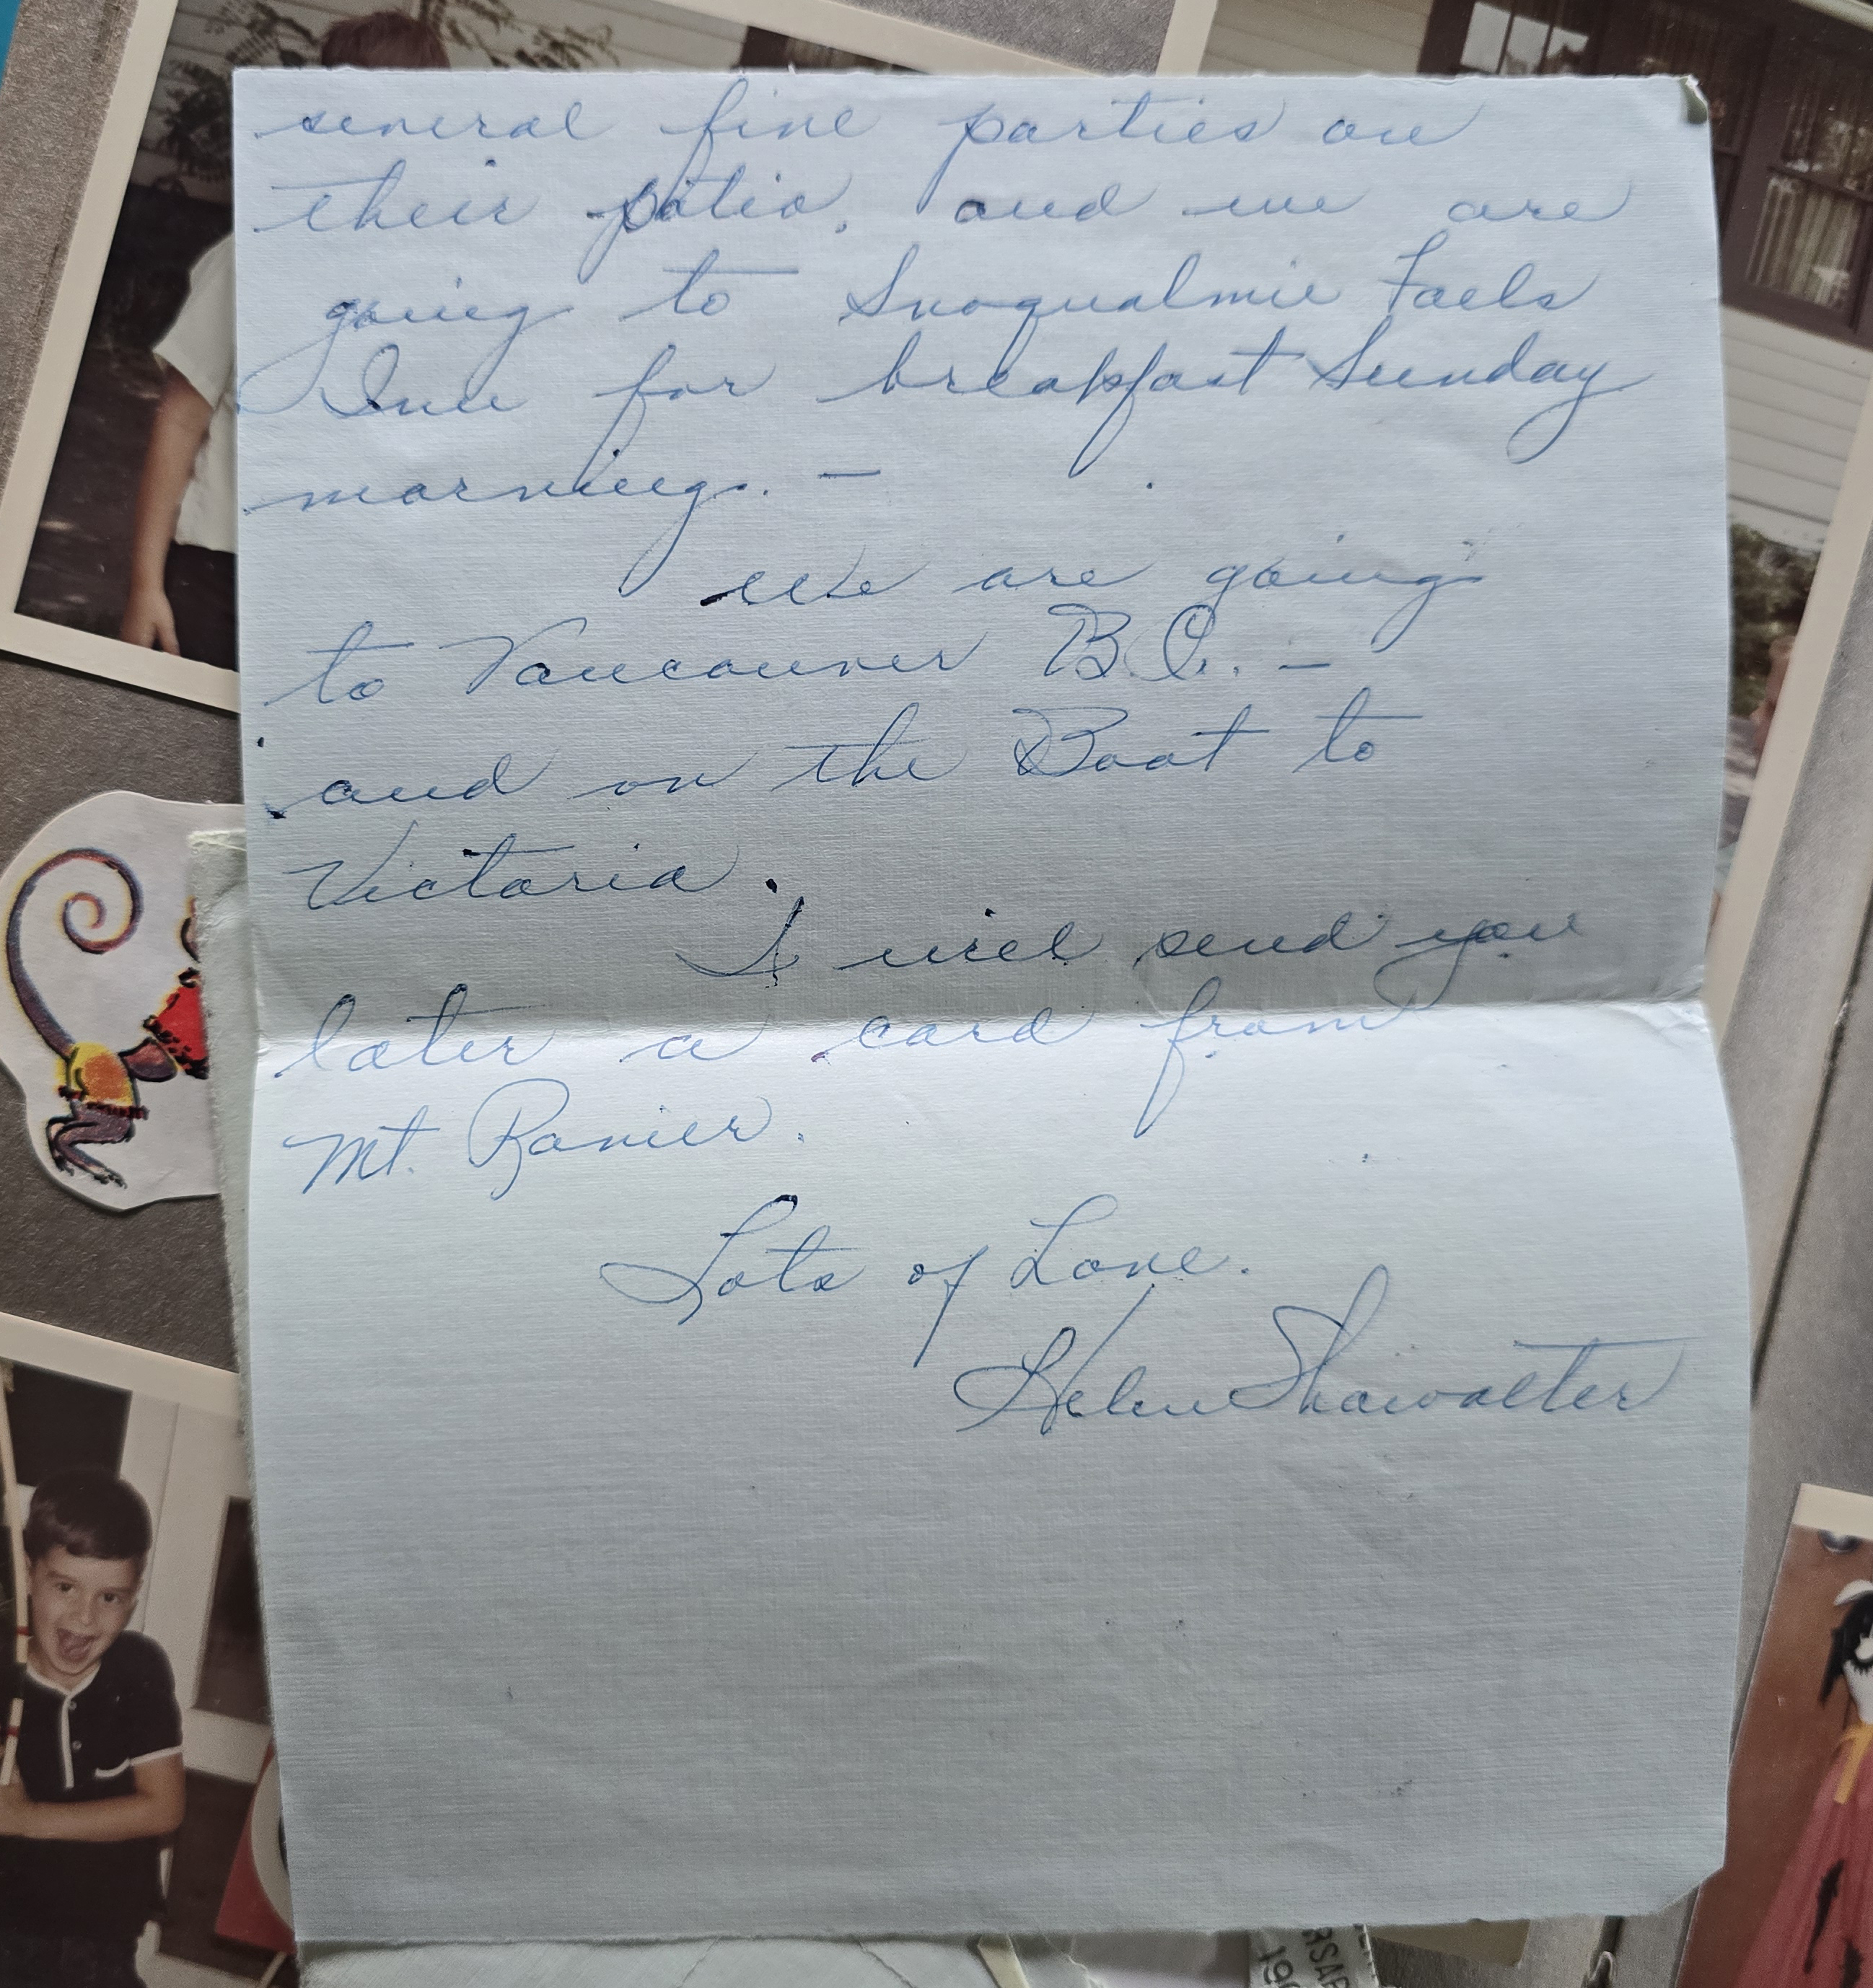 several fine parties on
their patio. and we are
going to Snoqualmie Falls
Inn for breakfast Sunday
morning. -
We are going
to Vancouver B.C. -
and on the Boat to
Victoria.
I will send you
later a card from
Mt. Ranier.
Lots of Love.
Helen Showalter